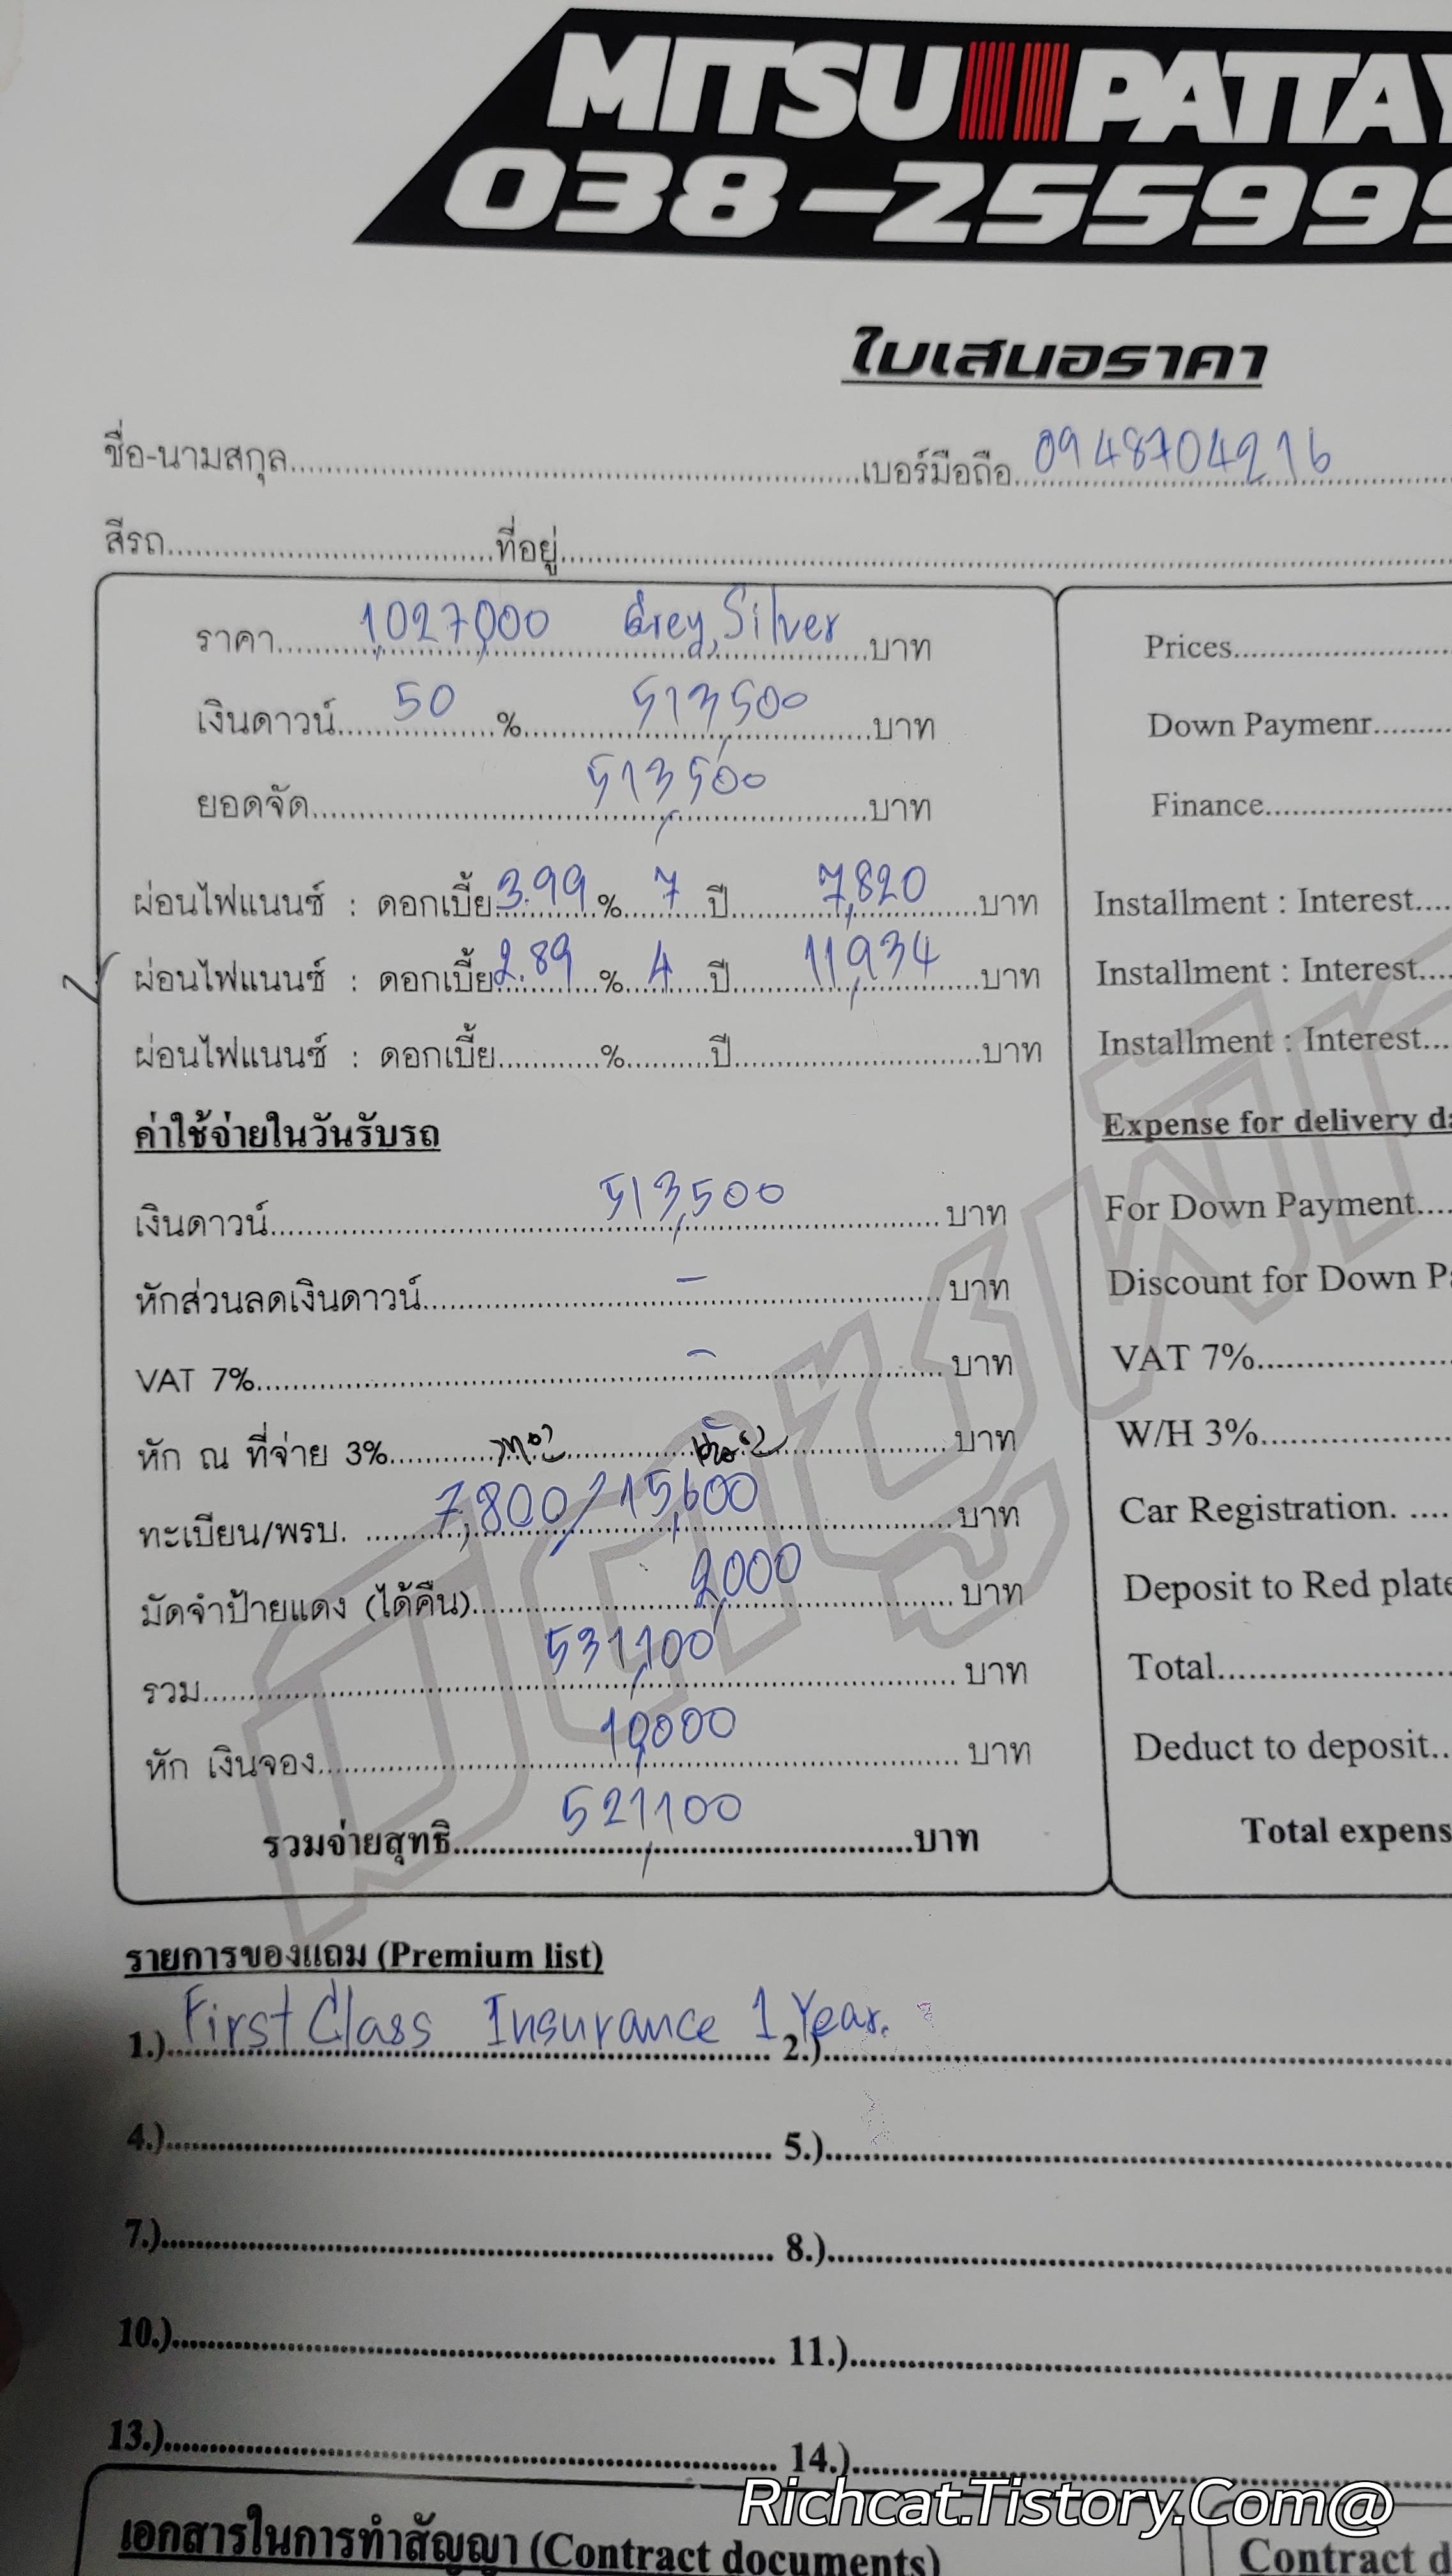 MITSU PATTAY
038-255999
ใบเสนอราคา
ชื่อ-นามสกุล..........เบอร์มือถือ 0948704216
สีรถ..........ที่อยู่..........
ราคา 1,027,000 Grey, Silver บาท
Prices..........
เงินดาวน์ 50 % 513,500 บาท
Down Paymenr..........
ยอดจัด 513,500 บาท
Finance..........
ผ่อนไฟแนนซ์ : ดอกเบี้ย 3.99 % 7 ปี 7,820 บาท
Installment : Interest....
ผ่อนไฟแนนซ์ : ดอกเบี้ย 2.89 % 4 ปี 11,934 บาท
Installment : Interest....
ผ่อนไฟแนนซ์ : ดอกเบี้ย..........%..........ปี..........บาท
Installment : Interest....
ค่าใช้จ่ายในวันรับรถ
Expense for delivery da
เงินดาวน์ 513,500 บาท
For Down Payment....
หักส่วนลดเงินดาวน์ - บาท
Discount for Down Pa
VAT 7% - บาท
VAT 7%..........
หัก ณ ที่จ่าย 3%..........บาท
W/H 3%..........
ทะเบียน/พรบ. 7,800/15,600 บาท
Car Registration. ....
มัดจำป้ายแดง (ได้คืน) 2,000 บาท
Deposit to Red plate
รวม 531,100 บาท
Total..........
หัก เงินจอง 10,000 บาท
Deduct to deposit..
รวมจ่ายสุทธิ 521,100 บาท
Total expens
รายการของแถม (Premium list)
1.) First Class Insurance 1 Year. 2.)..........
4.)..........5.)..........
7.)..........8.)..........
10.)..........11.)..........
13.)..........14.)..........
Richcat.Tistory.Com@
เอกสารในการทำสัญญา (Contract documents)
Contract d